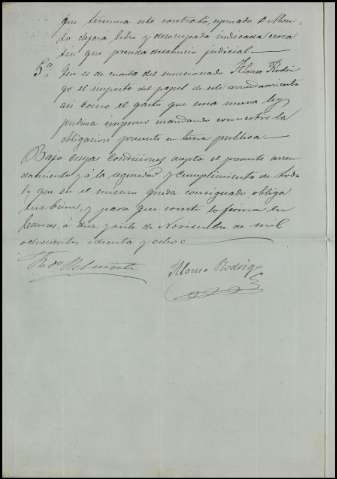 que termina este contrato, ejando
dejará libre y desocupada indicada casa
sin que preceda desahucio judicial.
5ª Que es de cuenta del mencionado Alonso Rodri
go el importe del papel de este arrendamiento
asi como el gasto que una nueva ley
pudiera imponer mandando convertir la
obligacion presente en pública.
Bajo cuyas condiciones acepta el presente arren
damiento y á la seguridad y cumplimiento de todo
lo que en el mismo queda consignado obliga
sus bienes, y para que conste lo firma en
á diez y siete de Noviembre de mil
ochocientos ochenta y ocho.
Alonso Rodrigo